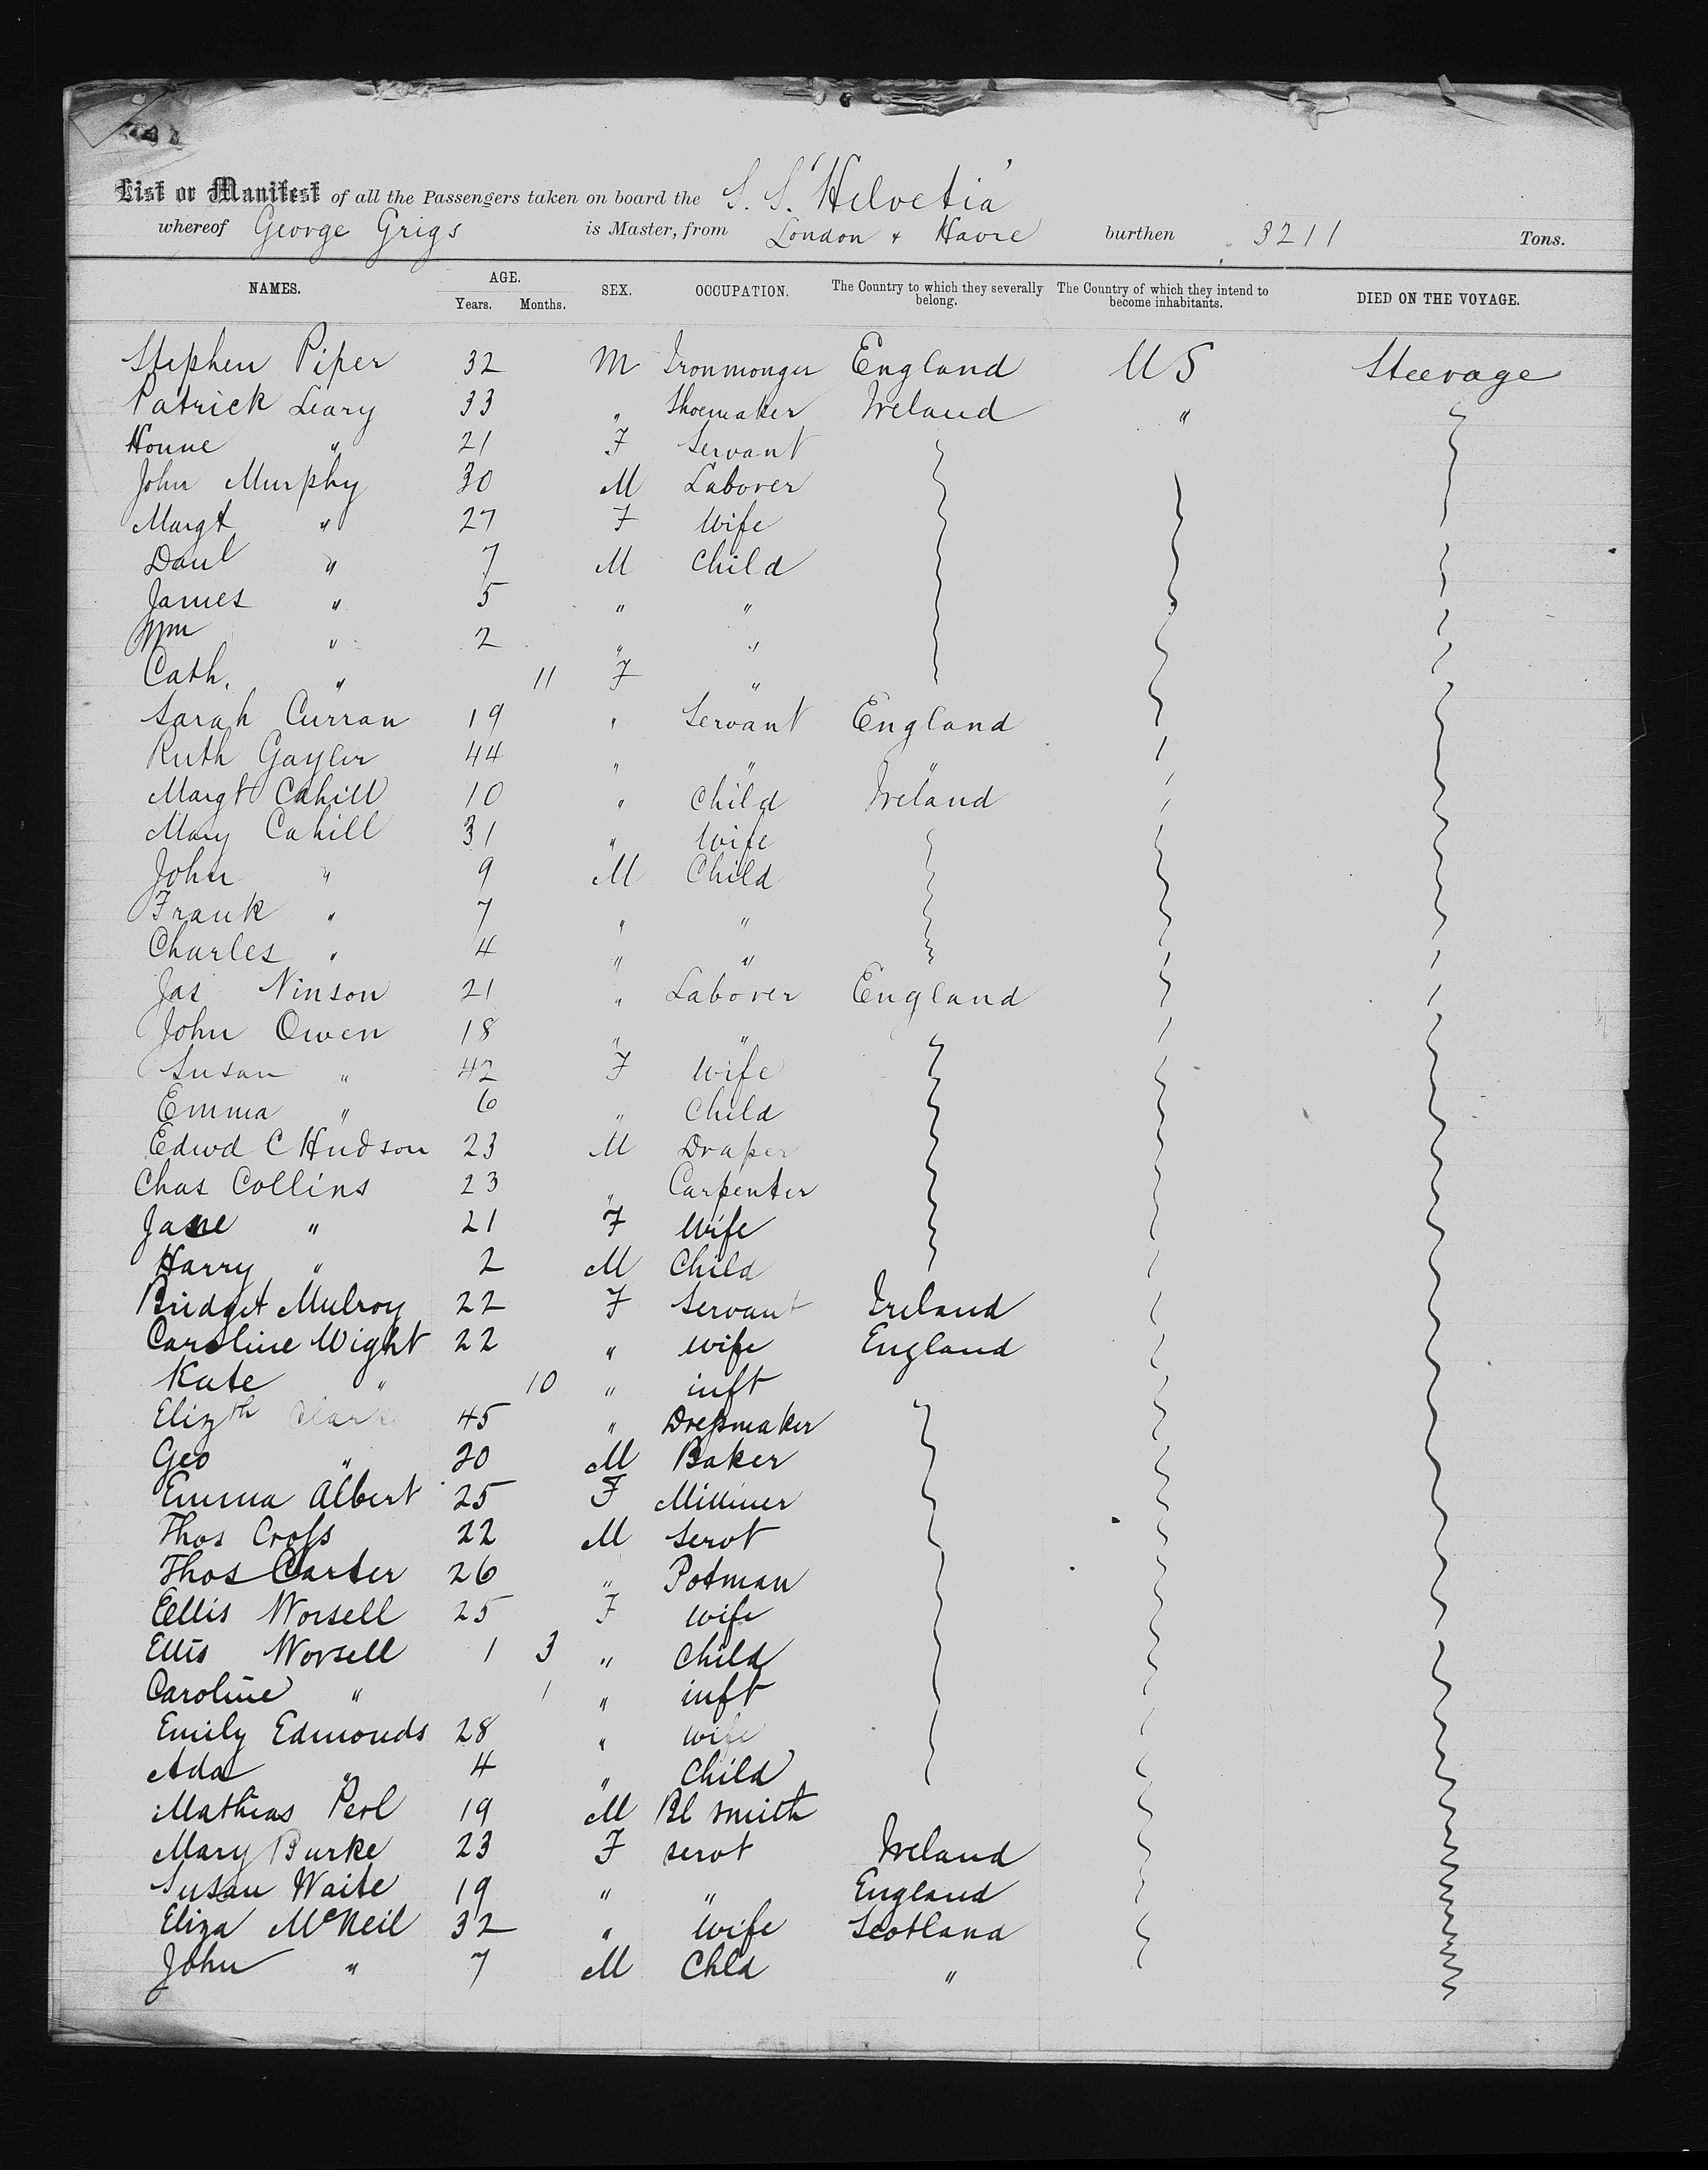 List or Manifest of all the Passengers taken on board the S. S. "Helvetia"
whereof George Grigs is Master, from London & Havre burthen 3211 Tons.
NAMES. AGE. Years. Months. SEX. OCCUPATION. The Country to which they severally belong. The Country of which they intend to become inhabitants. DIED ON THE VOYAGE.
Stephen Piper 32 M Ironmonger England U S Steerage
Patrick Leary 33 " Shoemaker Ireland "
Honne " 21 F Servant
John Murphy 30 M Laborer
Margt " 27 F Wife
Danl " 7 M Child
James " 5 " "
Wm " 2 " "
Cath. " 11 F "
Sarah Curran 19 " Servant England
Ruth Gayler 44 " " "
Margt Cahill 10 " Child Ireland
Mary Cahill 31 " Wife
John " 9 M Child
Frank " 7 " "
Charles " 4 " "
Jas Ninson 21 " Laborer England
John Owen 18 " "
Susan " 42 F Wife
Emma " 6 " Child
Edwd C Hudson 23 M Draper
Chas Collins 23 " Carpenter
Jane " 21 F Wife
Harry " 2 M Child
Bridget Mulroy 22 F Servant Ireland
Caroline Wight 22 " Wife England
Kate " 10 " inft
Elizth Clark 45 " Dressmaker
Geo " 20 M Baker
Emma Albert 25 F Milliner
Thos Cross 22 M Servt
Thos Carter 26 " Potman
Ellis Worsell 25 F Wife
Ellis Worsell 1 3 " Child
Caroline " 1 " inft
Emily Edmonds 28 " Wife
Ada " 4 " Child
Mathias Perl 19 M Bl smith
Mary Burke 23 F servt Ireland
Susan Waite 19 " " England
Eliza McNeil 32 " Wife Scotland
John " 7 M Chld "